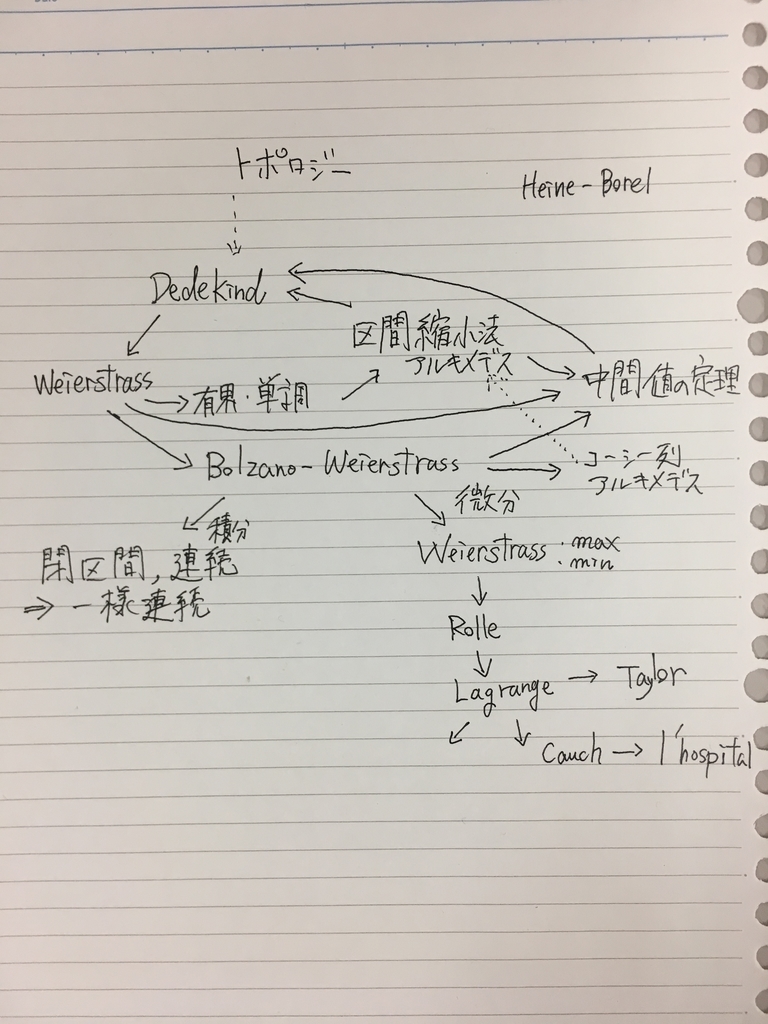 トポロジー
Heine-Borel
Dedekind
区間縮小法
アルキメデス
Weierstrass
有界・単調
中間値の定理
Bolzano-Weierstrass
コーシー列
アルキメデス
積分
微分
閉区間, 連続
⇒ 一様連続
Weierstrass ・max
・min
Rolle
Lagrange → Taylor
Cauch → l'hospital